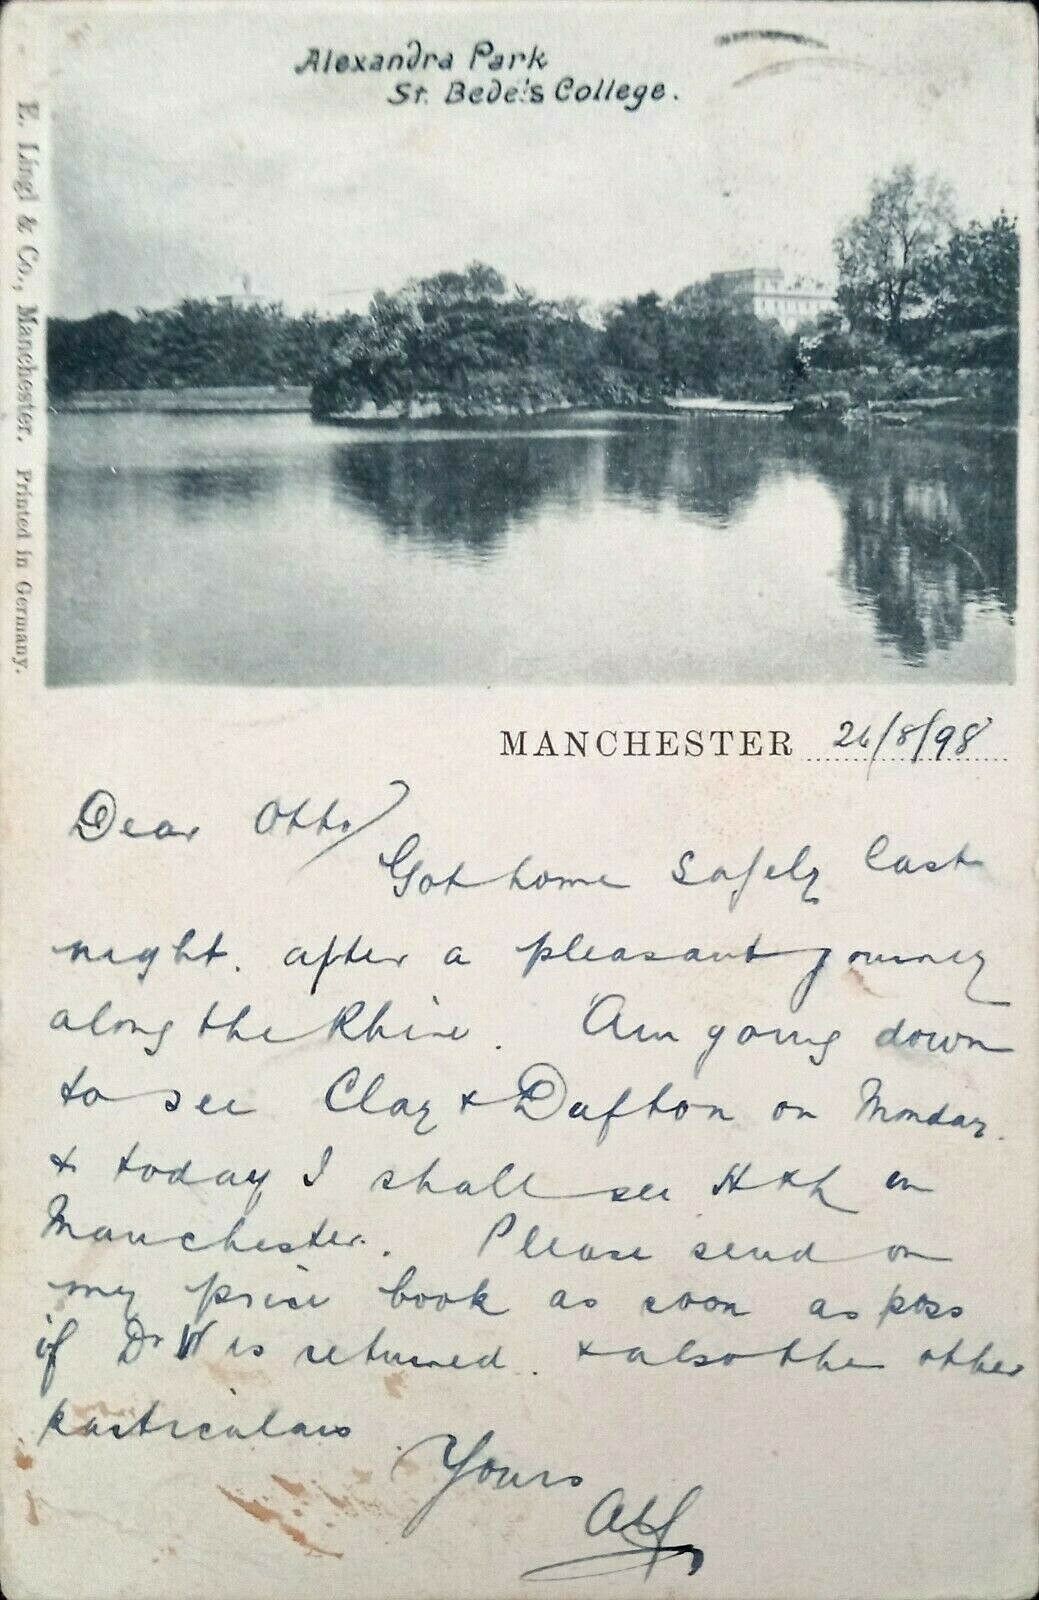 Alexandra Park
St. Bede's College.
E. Lingl & Co., Manchester. Printed in Germany.
MANCHESTER 26/8/98
Dear Otto
Got home safely last
night. after a pleasant journey
along the Rhine. Am going down
to see Clay & Dufton on Monday.
& today I shall see H & h in
Manchester. Please send on
my price book as soon as poss
if Dr W is returned. & also the other
particulars
Yours